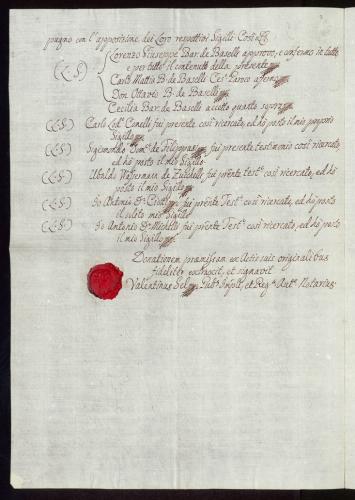 pugno con l'apposizione dei Loro respettivi Sigilli. Così
Lorenzo Giuseppe Bar. de Baselli approvo, e confermo in tutto
e per tutto il contenuto della presente
(L.S.)
Carlo Mattia B. de Baselli Ces.º Parroco affermo
Don Ottavio B. de Baselli
Cecilia Bar. de Baselli accetto quanto sopra
(L.S.) Carlo fui presente, così ricercato, ed hò posto il mio proprio
Sigillo
(L.S.) Sigismondo fui presente testimonio così ricercato,
ed hò posto il mio Sigillo
(L.S.) Ubaldo de fui p̃rente Test.º così ricercato, ed hò
posto il mio Sigillo
(L.S.) Io Antonio fui p̃rente Test.º così ricercato, ed hò posto
il solito mio Sigillo
(L.S.) Io Antonio fui p̃rente Test.º così ricercato, ed hò posto
il mio Sigillo
Donationem praemissam ex Actis suis originalibus
fideliter extraxit, et signavit
Valentinus et Reg.ª Aut.ª Notarius